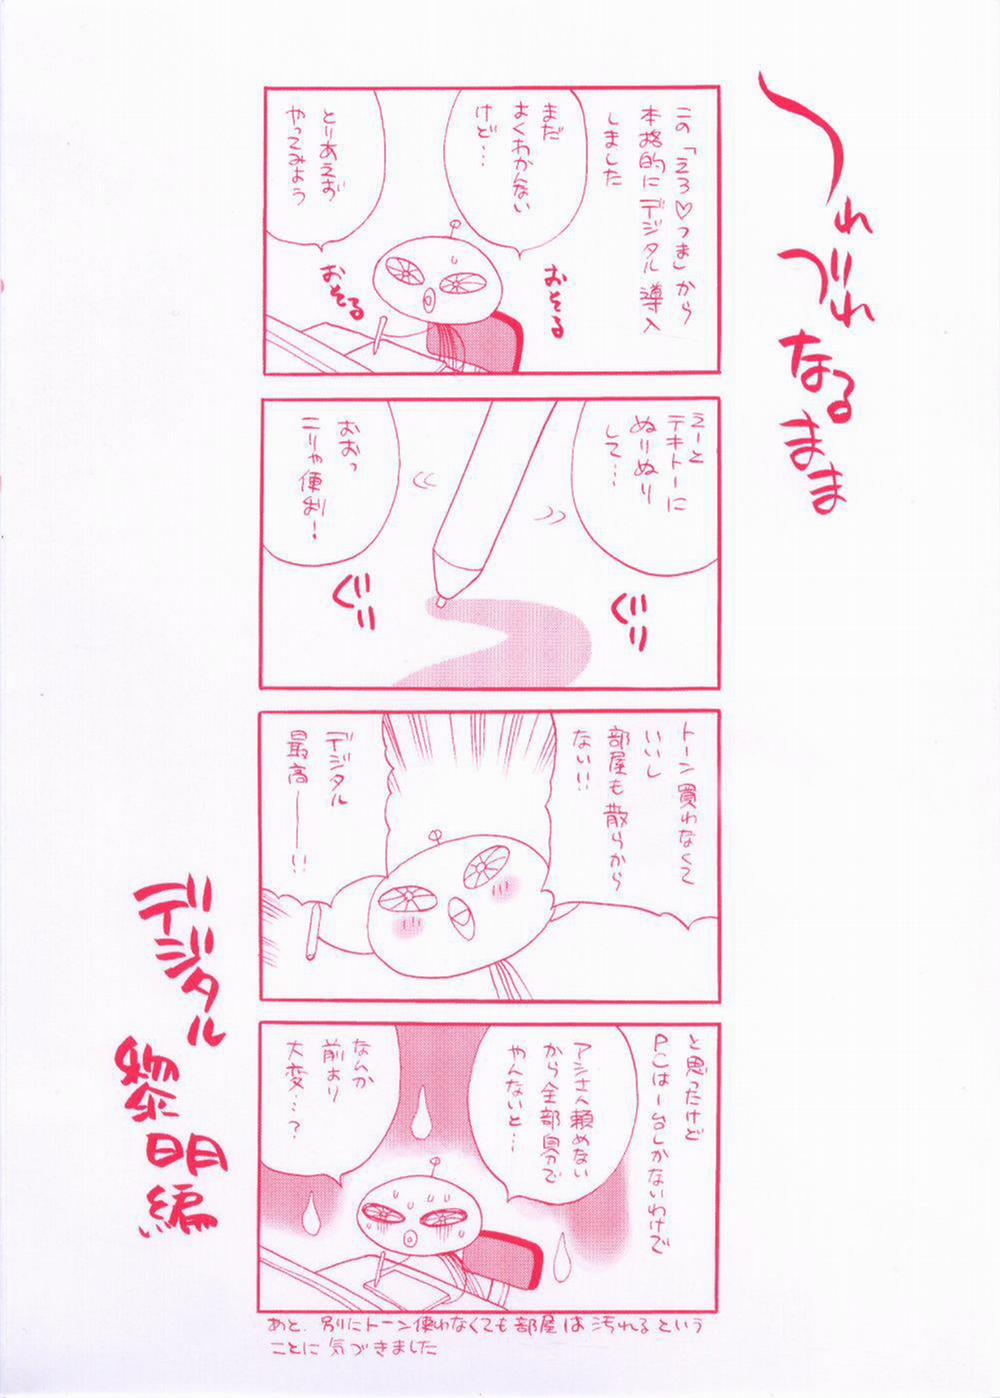 つれ
づれ
なる
まま
この「えろ♡つま」から
本格的にデジタル導入
しました
まだ
よくわかんない
けど…
とりあえず
やってみよう
おそる
おそる
えーと
テキトーに
ぬりぬり
して…
おおっ
こりゃ便利！
ぐり
ぐり
トーン買わなくて
いいし
部屋も散らから
ない!!
デジタル
最高――!!
と思ったけど
PCは一台しかないわけで
アシさん頼めない
から全部自分で
やんないと…
なんか
前より
大変…？
あと、別にトーン使わなくても部屋は汚れるという
ことに気づきました
デジタル
黎明編